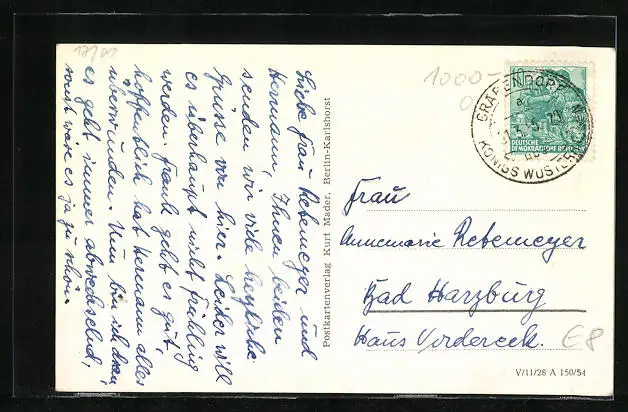 Liebe Frau Rebemeyer und
Hermann, Ihnen beiden
senden wir viele herzliche
Grüsse von hier. Leider will
es überhaupt nicht Frühling
werden. Frank geht es gut,
hoffentlich hat Hermann alles
überwunden. Nun bin ich dran,
es geht immer abwechselnd,
sonst wäre es ja zu schön.
Postkartenverlag Kurt Mader, Berlin-Karlshorst
1000-
10
DEUTSCHE
DEMOKRATISCHE REPUBLIK
GRÄFENDORF
KÖNIGS WUSTERHAUSEN
Frau
Annemarie Rebemeyer
Bad Harzburg
Haus Vordereck.
E8
V/11/28 A 150/54